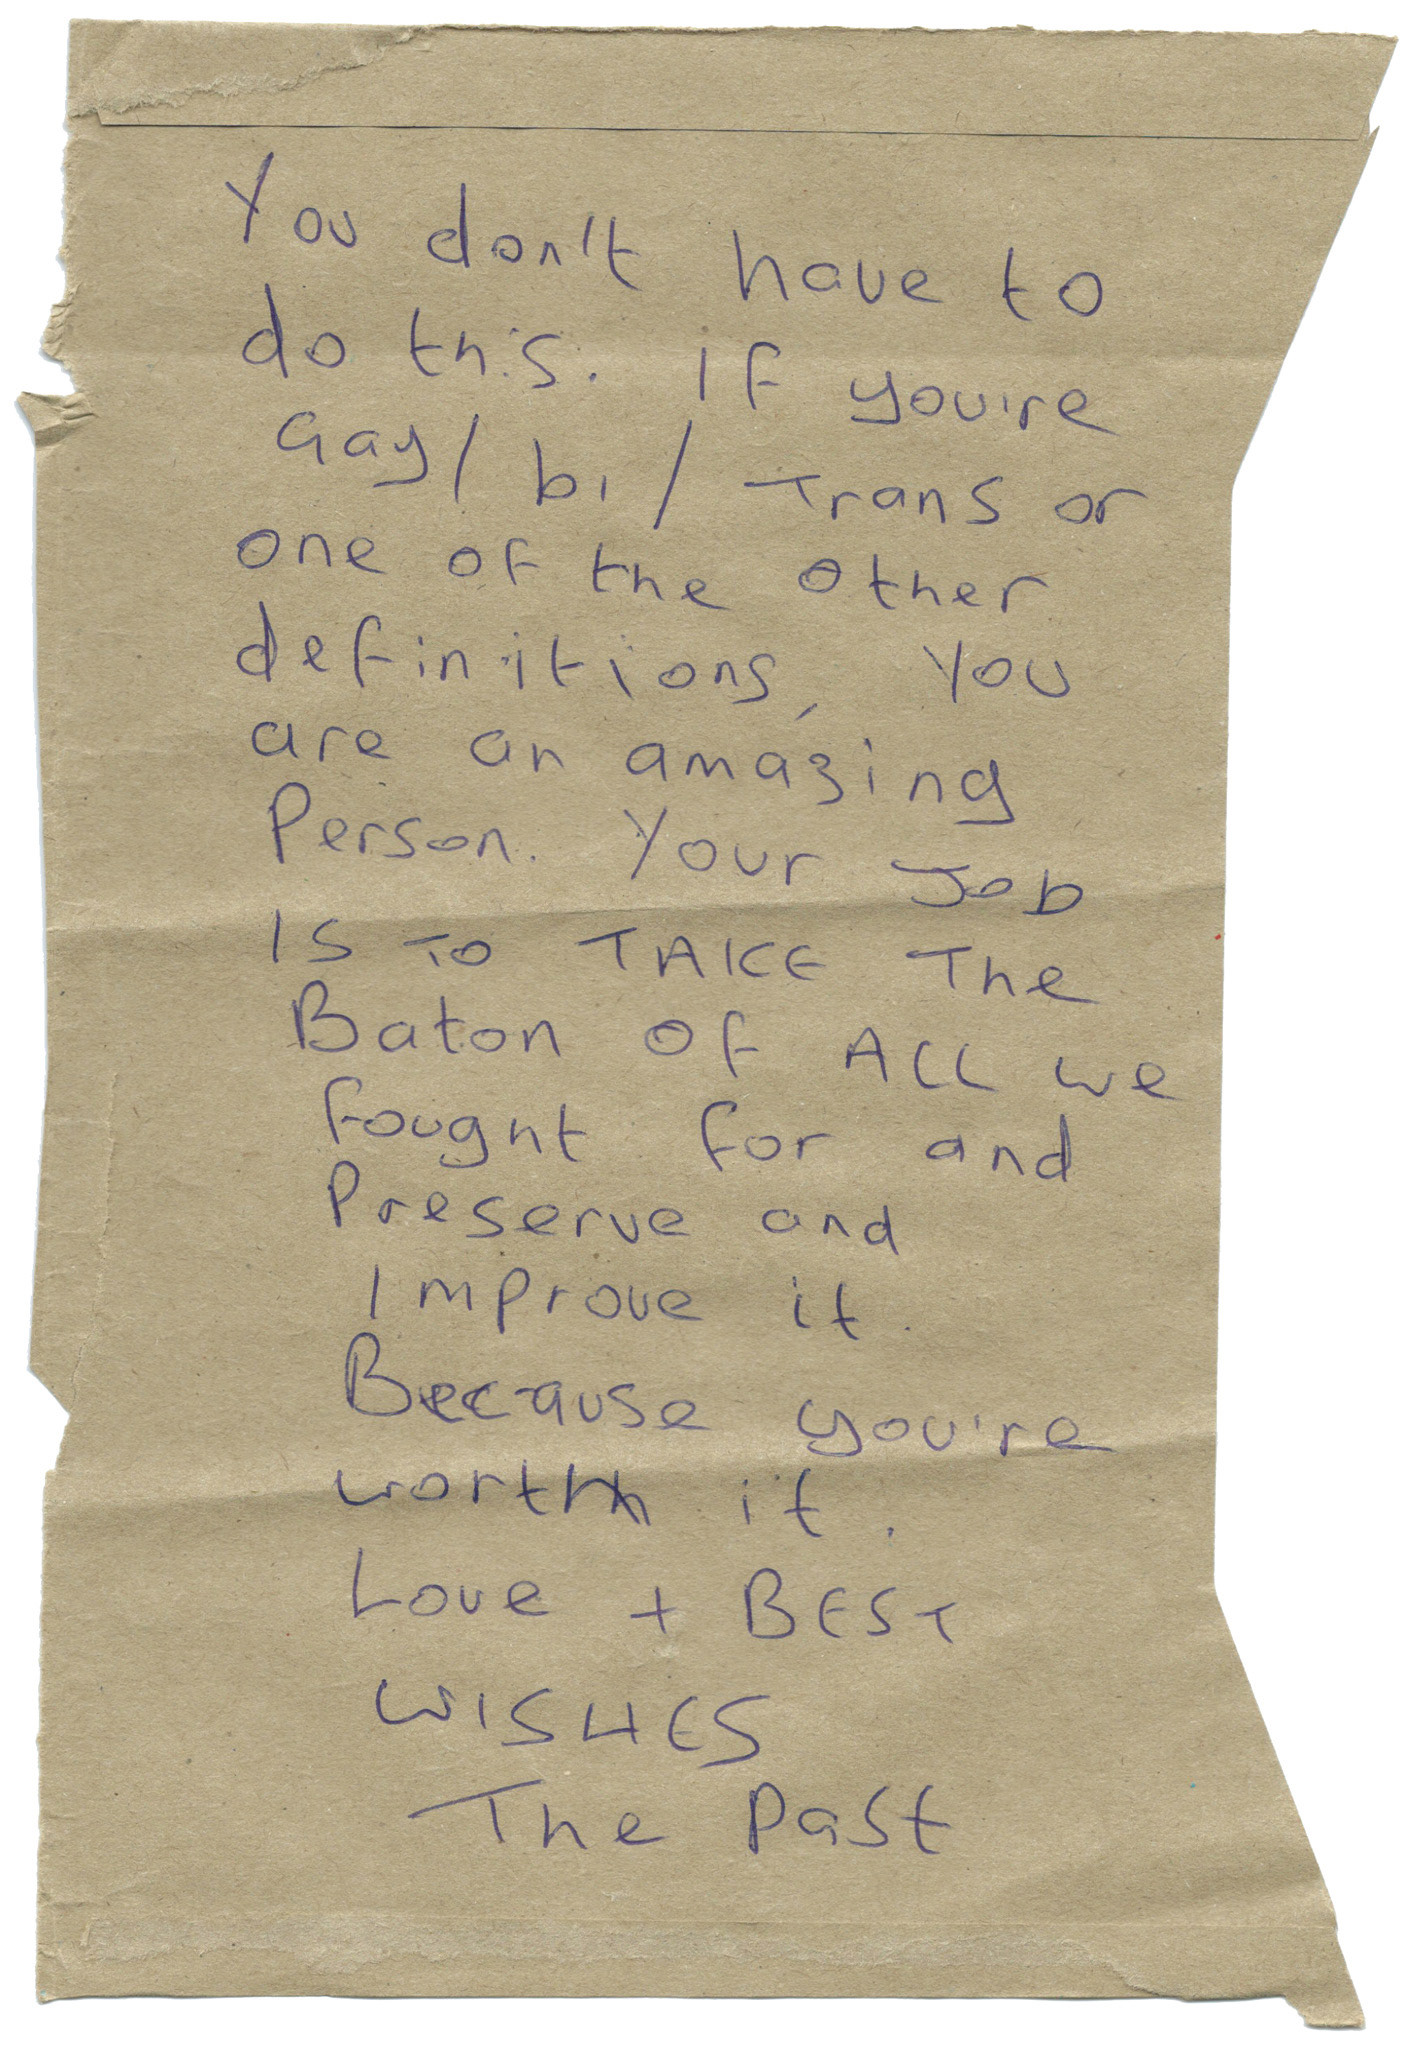 You don't have to
do this. If you're
Gay / bi / Trans or
one of the other
definitions, You
are an amazing
Person. Your Job
Is To TAKE The
Baton of ALL we
fought for and
Preserve and
Improve it.
Because you're
worth it.
Love + BEST
WISHES
The Past